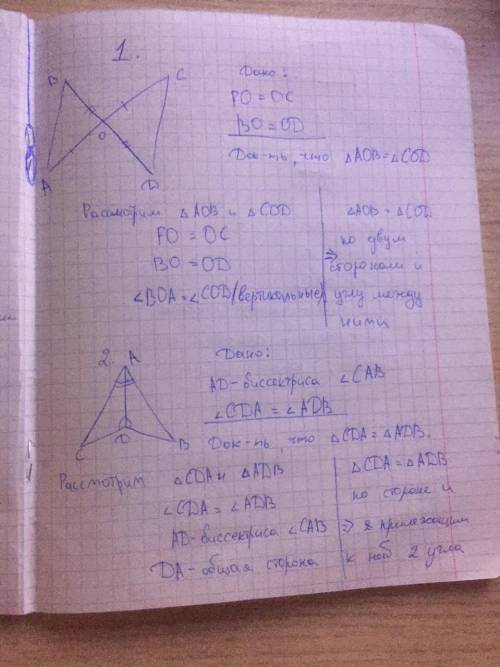 1.
B
C
O
A
D
Дано:
FO = OC
BO = OD
Док-ть, что △AOB = △COD
Рассмотрим △AOB и △COD
FO = OC
BO = OD
∠BOA = ∠COD (вертикальные)
⇒
△AOB = △COD
по двум
сторонам и
углу между
ними
2.
A
C
D
B
Дано:
AD-биссектриса ∠CAB
∠CDA = ∠ADB
Док-ть, что △CDA = △ADB.
Рассмотрим △CDA и △ADB
∠CDA = ∠ADB
AD-биссектриса ∠CAB
DA-общая сторона
⇒
△CDA = △ADB
по стороне и
2 прилежащим
к ней 2 угла